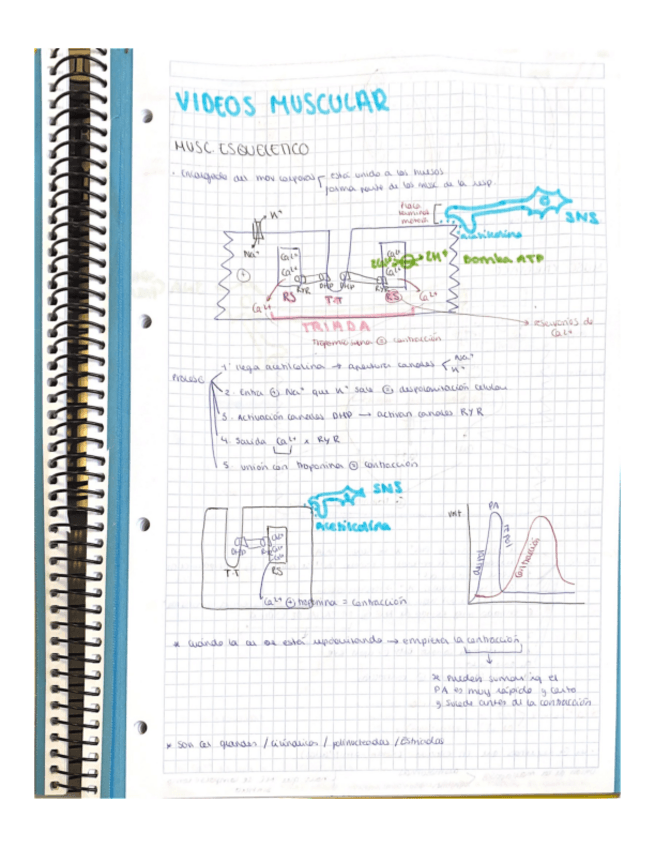 VIDEOS MUSCULAR
MUSC. ESQUELETICO
· Encargado del mov corporal está unido a los huesos
forma parte de los musc. de la resp.
Placa
motora
SNS
acetilcolina
K⁺
Na⁺
Ca²⁺
Ca²⁺
RYR
DHP
DHP
RYR
Ca²⁺
Ca²⁺
2H⁺
Bomba ATP
+
Ca²⁺
RS
T-T
RS
Ca²⁺
TRIADA
reservorios de
Ca²⁺
contracción
Proceso
1. llega acetilcolina → apertura canales Na⁺
K⁺
2. Entra ⊕ Na⁺ que K⁺ sale ⊖ despolarización celular
3. Activación canales DHP → activan canales RYR
4. Salida Ca²⁺ x RYR
5. unión con troponina ⊖ contracción
SNS
Acetilcolina
DHP
T-T
RS
Ca²⁺ ⊕ troponina = contracción
PA
contracción
* Cuando la cel se está repolarizando → empieza la contracción
* Pueden sumar xq el
PA es muy rápido y corto
y sucede antes de la contracción
* Son cel grandes / cilíndricas / polinucleadas / Estriadas